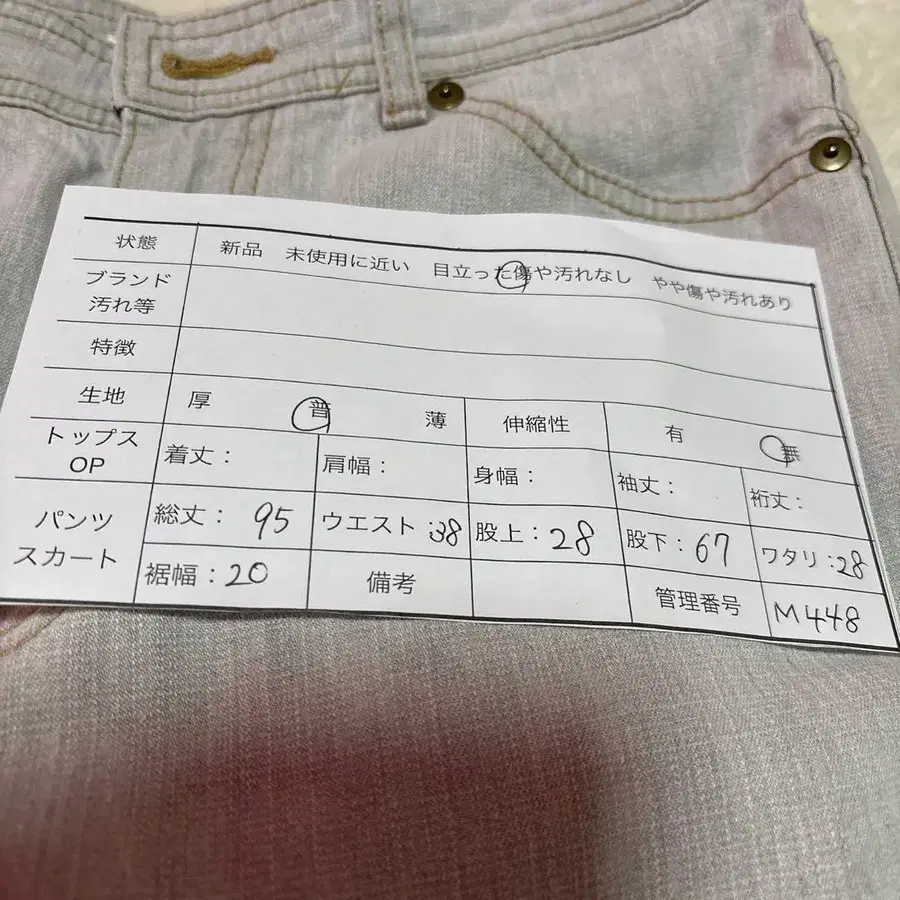 状態 新品 未使用に近い 目立った傷や汚れなし やや傷や汚れあり
ブランド
汚れ等
特徴
生地 厚 普 薄 伸縮性 有 無
トップス
OP
着丈: 肩幅: 身幅: 袖丈: 裄丈:
パンツ
スカート
総丈: 95 ウエスト:38 股上:28 股下:67 ワタリ:28
裾幅:20 備考 管理番号 M448